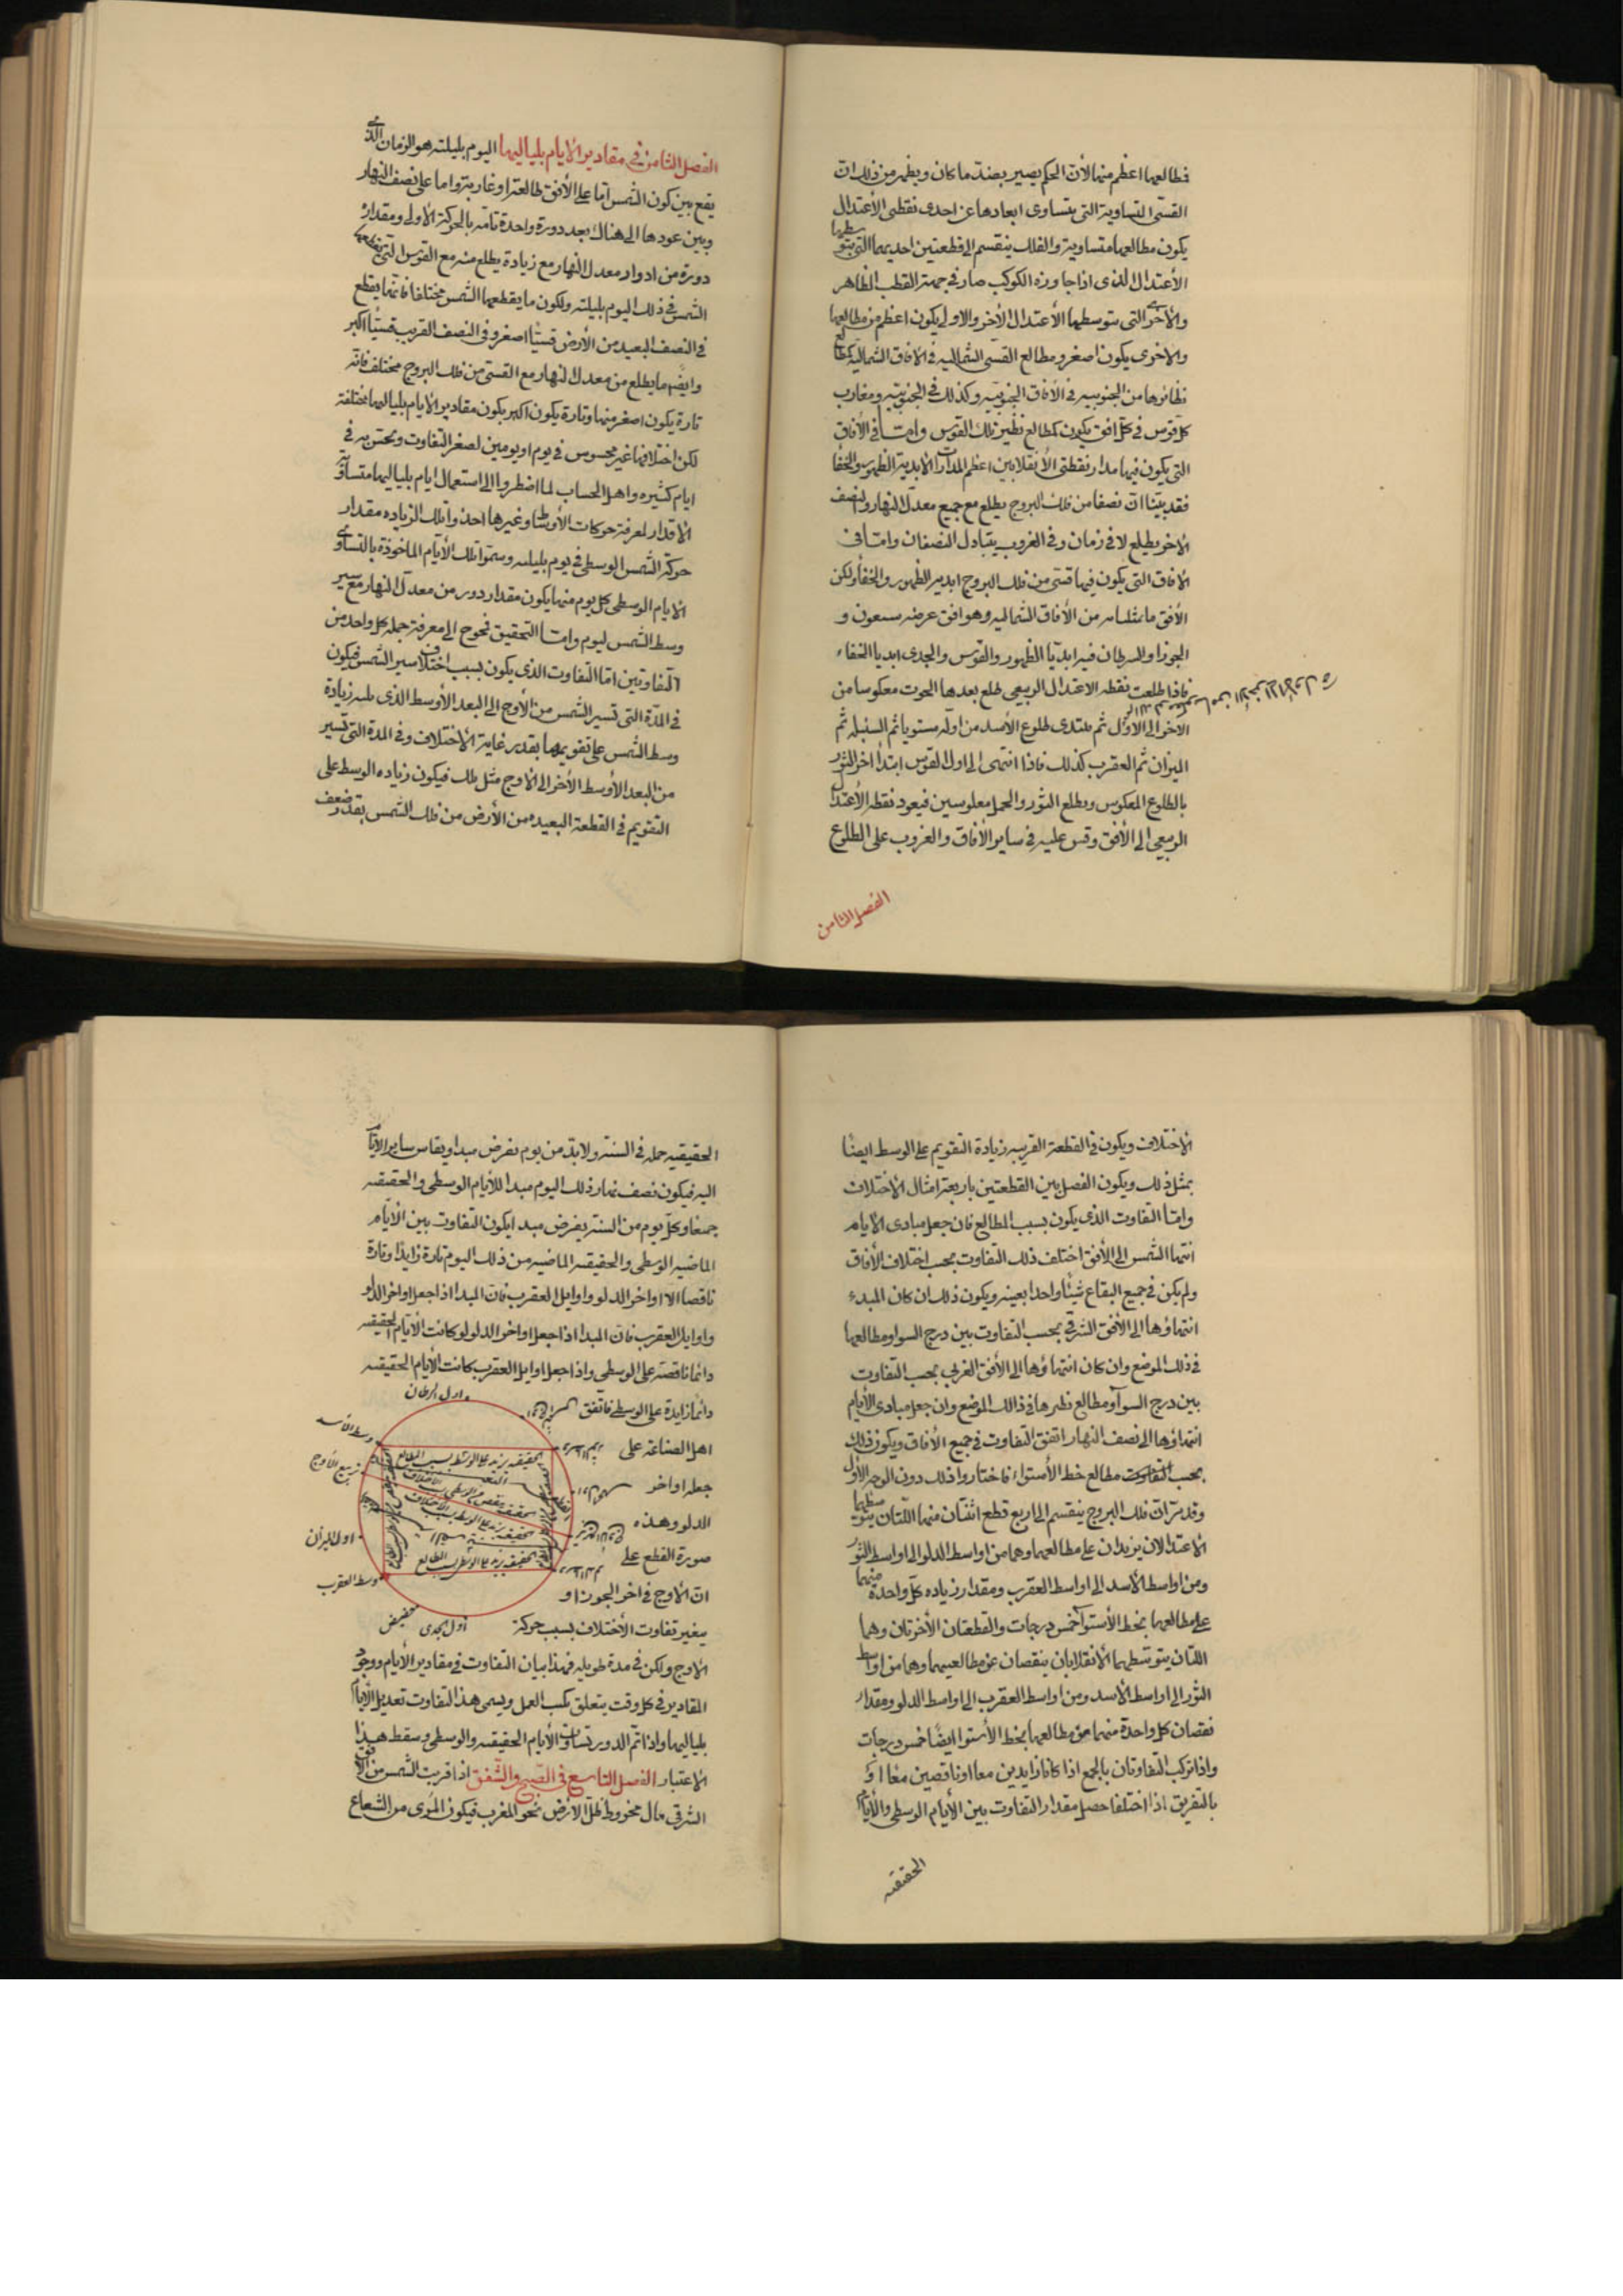 فطالعها اعظم منها لأن الحكم يصير بضد ما كان ويظهر من ذلك ان
القسى المتساوية التى يتساوى ابعادها عن احدى نقطتى الأعتدال
يكون مطالعها متساوية والفلك ينقسم الى قطعتين احديهما التى يتوسطها
الأعتدال الذى اذا جاوزه الكوكب صار فى جهة القطب الظاهر
والأخرى التى يتوسطها الأعتدال الأخر والاولى يكون اعظم من مطالعها
والاخرى يكون اصغر ومطالع القسى الشماليه فى الآفاق الشماليه كمطالع
نظائرها من الجنوبيه فى الآفاق الجنوبيه وكذلك فى الجنوبيه ومغارب
كل قوس فى كل افق يكون كمطالع نظير تلك القوس وامّا فى الآفاق
التى يكون فيها مدار نقطتى الأنقلابين اعظم المدارات الابدية الظهور والخفا
فقد بيّنا ان نصفا من فلك البروج يطلع مع جميع معدل النهار والنصف
الاخر يطلع لا فى زمان وفى الغروب يتبادل النصفان وامّا فى
الافاق التى يكون فيها قسى من فلك البروج ابدية الظهور والخفا ولكن
الأفق ما مثلنا به من الأفاق الشماليه وهو افق عرضه سبعون و
الجوزا والسرطان فيه ابديّا الظهور والقوس والجدى ابديا الخفاء
فاذا طلعت نقطه الاعتدال الربيعى طلع بعدها الحوت معكوسا من
الاخر الى الاول ثم يبتدى طلوع الأسد من اوله مستويا ثم السنبله ثم
الميزان ثم العقرب كذلك فاذا انتهى الى اول القوس ابتدأ اخر الثور
بالطلوع المعكوس ويطلع الثور والحمل معكوسين فيعود نقطه الأعتدال
الربيعى الى الأفق وقس عليه فى ساير الأفاق والغروب على الطلوع
الفصل الثامن
الفصل الثامن فى مقادير الايام بلياليها اليوم بليلته هو الزمان الذى
يقع بين كون الشمس اما على الأفق طالعة او غاربة واما على نصف النهار
وبين عودها الى هناك بعد دورة واحدة تامه بالحركة الأولى ومقداره
دورة من ادوار معدل النهار مع زيادة يطلع منه مع القوس التى يقطعها
الشمس فى ذلك اليوم بليلته ولكون ما يقطعها الشمس مختلفا فانها يقطع
فى النصف البعيد من الأرض قسيّا اصغر وفى النصف القريب قسيّا اكبر
وايضا ما يطلع من معدل النهار مع القسى من فلك البروج مختلف فانه
تارة يكون اصغر منها وتارة يكون اكبر يكون مقادير الايام بلياليها مختلفة
لكن اختلافها غير محسوس فى يوم او يومين لصغر التفاوت ويحتسب به فى
ايام كثيره واهل الحساب لما اضطروا الى استعمال ايام بلياليها متساوية
الاقدار لمعرفة حركات الأوساط وغيرها اخذوا تلك الزياده مقدار
حركة الشمس الوسطى فى يوم بليلته وسموا تلك الأيام الماخوذة بالتساوى
الايام الوسطى كل يوم منها يكون مقدار دور من معدل النهار مع سير
وسط الشمس ليوم وامّا التحقيق نحوج الى معرفة جملة كل واحد من
التفاوتين امّا التفاوت الذى يكون بسبب اختلاف سير الشمس فيكون
فى المدّة التى تسير الشمس من الأوج الى البعد الأوسط الذى يليه زيادة
وسط الشمس على تقويمها بقدر غاية الأختلاف وفى المدة التى تسير
من البعد الأوسط الأخر الى الأوج مثل ذلك فيكون زياده الوسط على
التقويم فى القطعة البعيده من الأرض من فلك الشمس بقدر ضعف
الأختلاف ويكون فى القطعة القريبه زيادة التقويم على الوسط ايضا
بمثل ذلك ويكون الفصل بين القطعتين باربعة امثال الاختلاف
وامّا التفاوت الذى يكون بسبب المطالع فان جعل مبادى الايام
انتها الشمس الى الأفق اختلف ذلك التفاوت بحسب اختلاف الأفاق
ولم يكن فى جميع البقاع شيئا واحدا بعينه ويكون ذلك ان كان المبدء
انتهاؤها الى الأفق الشرقى بحسب التفاوت بين درج السوا ومطالعها
فى ذلك الموضع وان كان انتهاؤها الى الأفق الغربى بحسب التفاوت
بين درج السوآ ومطالع نظيرها فى ذالك الموضع وان جعل مبادى الأيام
انتهاؤها الى نصف النهار اتفق التفاوت فى جميع الأفاق ويكون ذلك
بحسب التفاوت مطالع خط الأستواء فاختاروا ذلك دون الوجه الأول
وقد مرّ ان فلك البروج ينقسم الى اربع قطع اثنتان منها اللتان يتوسطهما
الأعتدالان يزيدان على مطالعهما وهما من اواسط الدلو الى اواسط الثور
ومن اواسط الأسد الى اواسط العقرب ومقدار زياده كل واحدة منهما
على مطالعها بخط الأستوآ خمس درجات والقطعتان الأخرتان وهما
اللتان يتوسطهما الأنقلابان ينقصان عن مطالعيهما وهما من اواسط
الثور الى اواسط الأسد ومن اواسط العقرب الى اواسط الدلو ومقدار
نقصان كل واحدة منهما عن مطالعها بخط الأستوا ايضا خمس درجات
واذا تركب التفاوتان بالجمع اذا كانا زايدين معا او ناقصين معا او
بالتفريق اذا اختلفا حصل مقدار التفاوت بين الأيام الوسطى والأيام
الحقيقيه
الحقيقيه جمله فى السنة ولا بدّ من يوم يفرض مبدا ويقاس ساير الأيام
اليه فيكون نصف نهار ذلك اليوم مبدا للأيام الوسطى والحقيقيه
جمعا وكل يوم من السنة يفرض مبدا يكون التفاوت بين الأيام
الماضيه الوسطى والحقيقيه الماضيه من ذلك اليوم تارة زايدا وتارة
ناقصا الا اواخر الدلو واوايل العقرب فان المبدا اذا جعل اواخر الدلو
واوايل العقرب فان المبدا اذا جعل اواخر الدلو لو كانت الأيام الحقيقيه
دائما ناقصة على الوسطى واذا جعل اوايل العقرب كانت الأيام الحقيقيه
دائما زايدة على الوسطى فاتفق
اهل الصناعة على
جعله اواخر
الدلو وهذه
صورة القطع على
ان الأوج فى اخر الجوزا و
يتغير تفاوت الأختلاف بسبب حركة
الأوج ولكن فى مدة طويله فهذا بيان التفاوت فى مقادير الأيام ووجود
المقادير فى كل وقت يتعلق بكتب العمل ويسمى هذا التفاوت تعديل الأيام
بلياليها واذا تمّ الدور تساوت الأيام الحقيقيه والوسطى وسقط هذا
الأعتبار الفصل التاسع فى الصبح والشفق اذا قربت الشمس من الأفق
الشرقى مال مخروط ظل الأرض نحو المغرب فيكون المرئى من الشعاع
اول السرطان
وسط الأسد
تربيع الأوج
اول الميزان
وسط العقرب
حضيض
اول الجدى
الحقيقيه يزيد على الوسط بسبب المطالع
الحقيقيه يزيد على الوسط بسبب المطالع